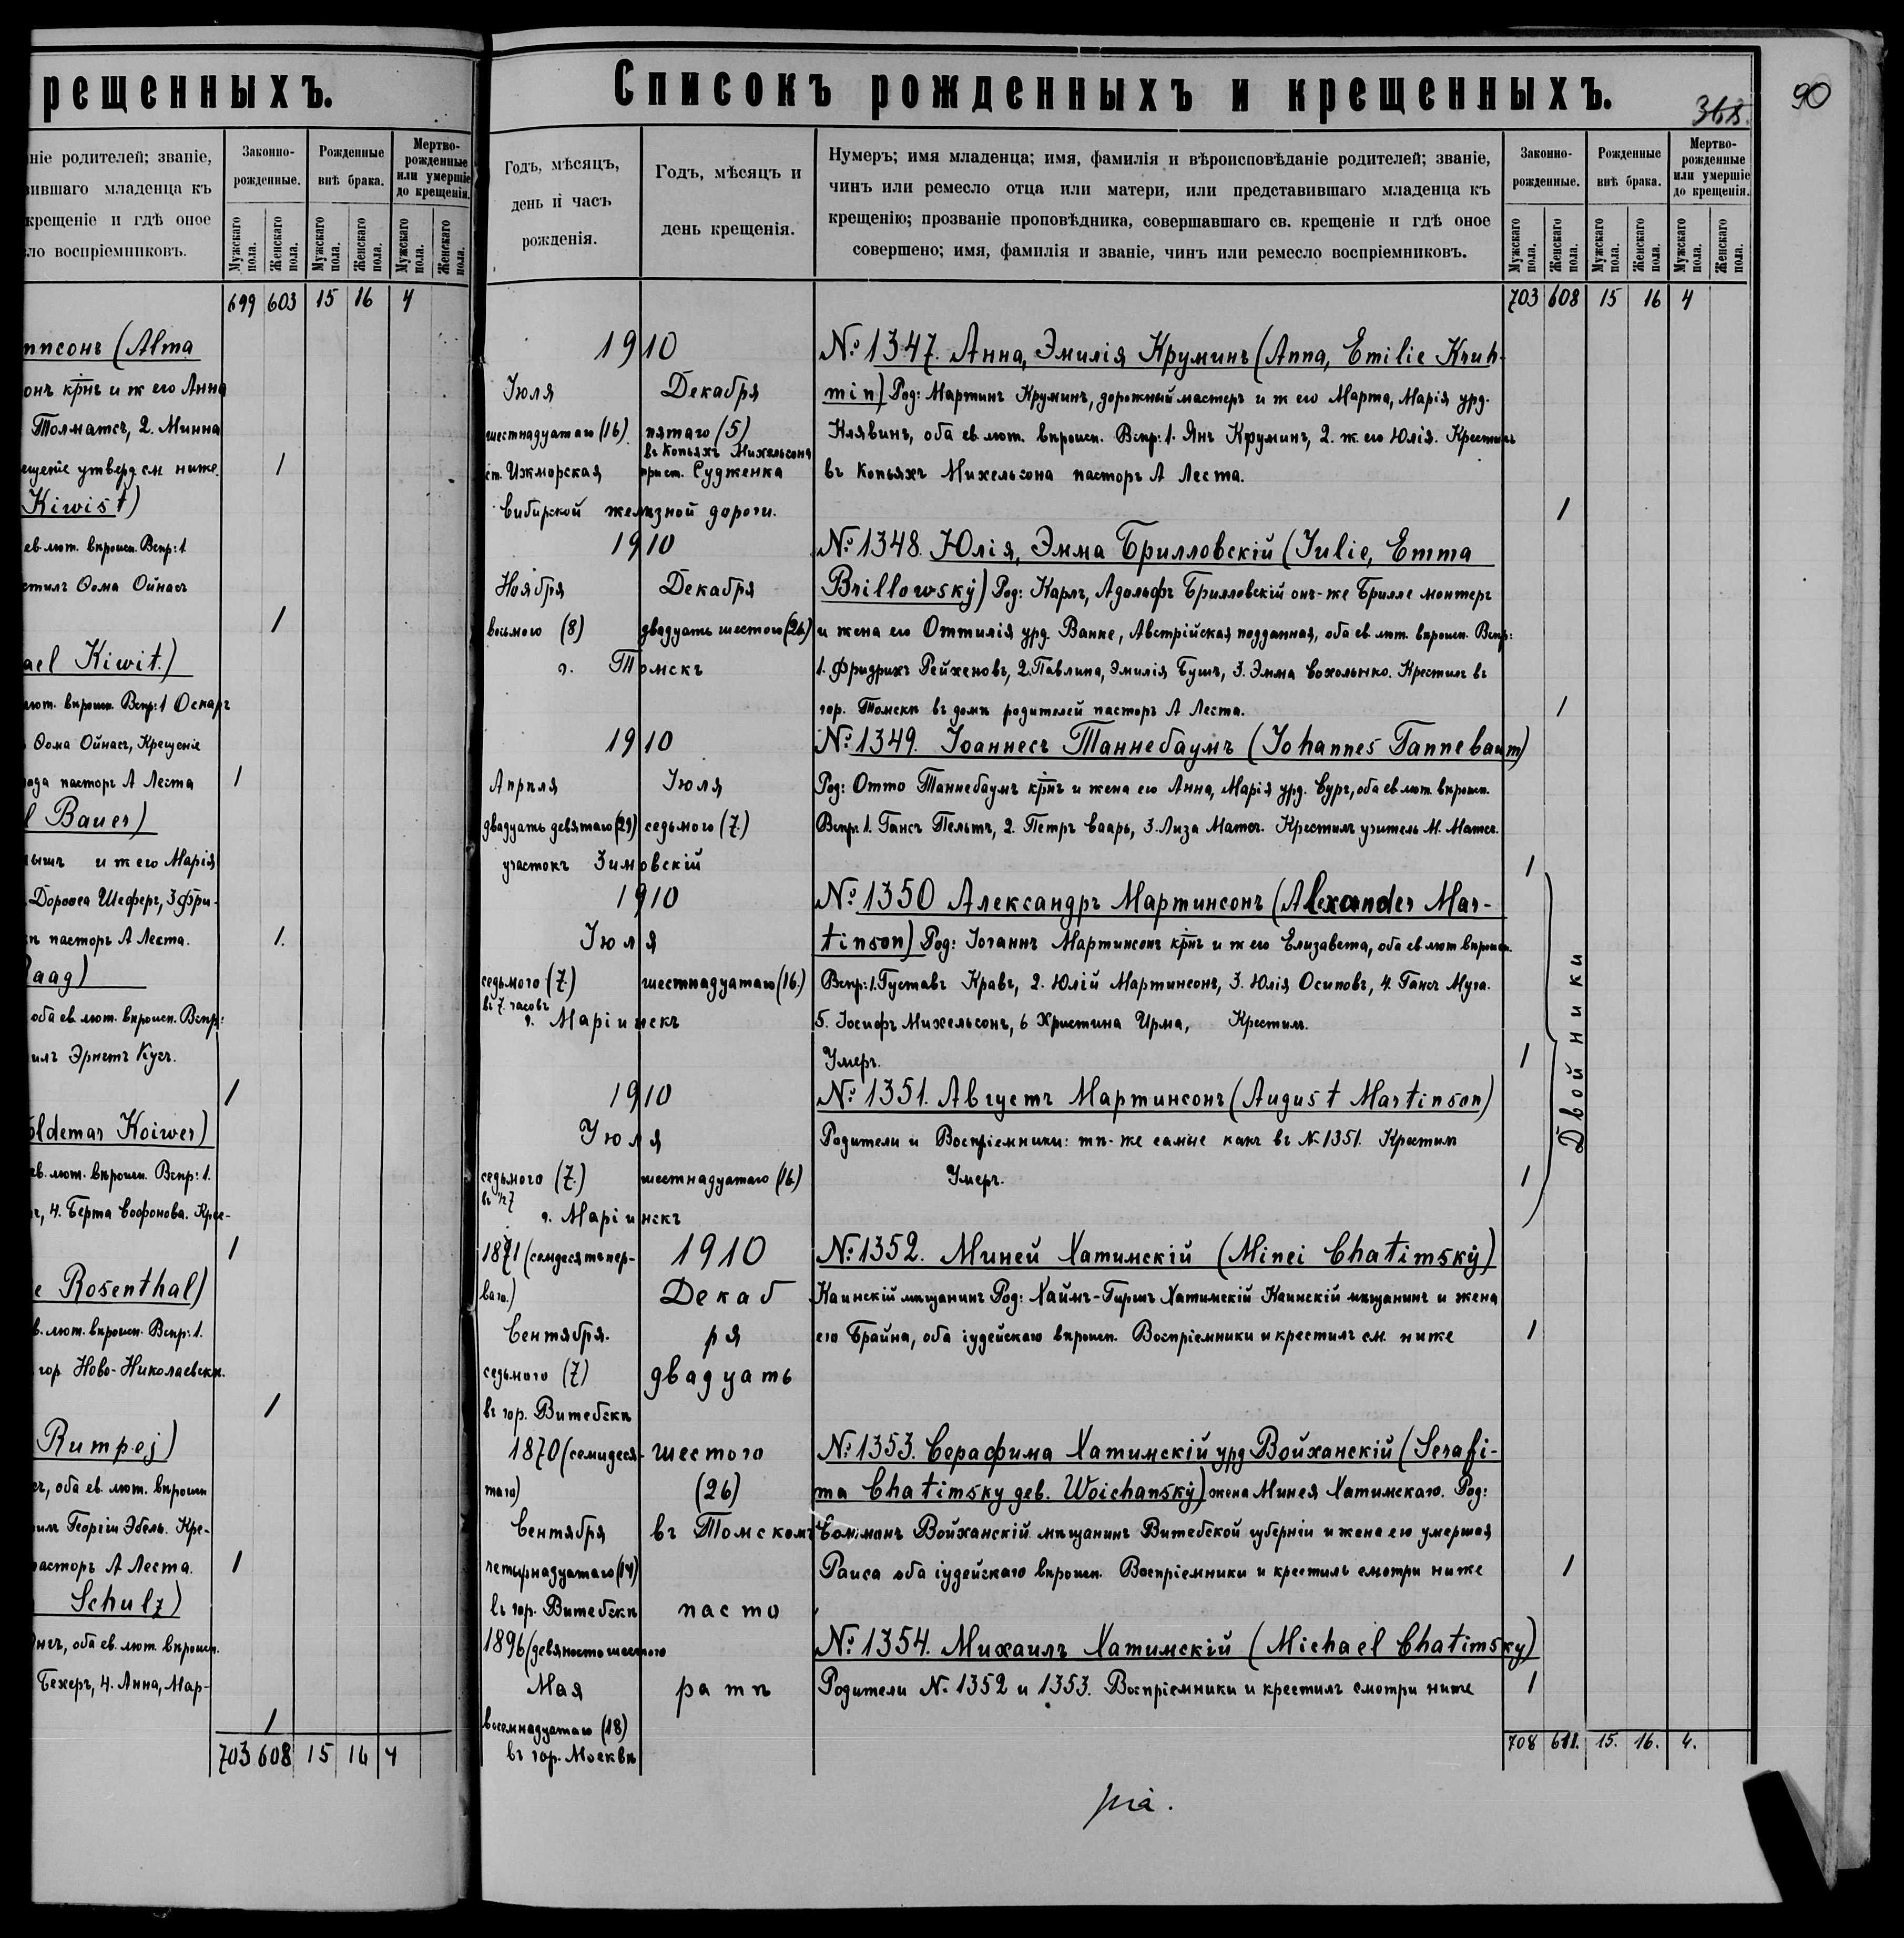 рещенныхъ.
ніе родителей; званіе,
вившаго младенца къ
крещеніе и гдѣ оное
ло воспріемниковъ.
Законно-
рожденные.
Рожденные
внѣ брака.
Мертво-
рожденные
или умершіе
до крещенія.
Мужскаго пола.
Женскаго пола.
Мужскаго пола.
Женскаго пола.
Мужскаго пола.
Женскаго пола.
699 603 15 16 4
ппсонъ (Alma
онъ крнъ и ж его Анна
Толматсъ, 2. Минна
ещеніе утверд см ниже. 1
Kiwist)
ев. лют. вѣроисп. Вспр: 1
стилъ Ѳома Ойнасъ
1
ael Kiwit.)
лют. вѣроисп. Вспр: 1 Оскаръ
Ѳома Ойнасъ, Крещеніе
ода пасторъ А Леста 1
l Bauer)
и ж его Марія
Доротея Шеферъ, 3 Фри-
пасторъ А Леста. 1.
Raag)
оба ев. лют. вѣроисп. Вспр:
илъ Эрнстъ Кусъ.
1
oldemar Koiwer)
ев. лют. вѣроисп. Вспр: 1.
4. Берта Соофонова. Кре-
1
e Rosenthal)
в. лют. вѣроисп. Вспр: 1.
гор Ново-Николаевскѣ.
1
Rumpej)
оба ев. лют. вѣроисп
Георгій Эбель. Кре-
пасторъ А Леста. 1
Schulz)
оба ев. лют. вѣроисп.
Бехеръ, 4. Анна, Мар-
1
703 608 15 16 4
Списокъ рожденныхъ и крещенныхъ.
368.
90
Годъ, мѣсяцъ,
день и часъ
рожденія.
Годъ, мѣсяцъ и
день крещенія.
Нумеръ; имя младенца; имя, фамилія и вѣроисповѣданіе родителей; званіе,
чинъ или ремесло отца или матери, или представившаго младенца къ
крещенію; прозваніе проповѣдника, совершавшаго св. крещеніе и гдѣ оное
совершено; имя, фамилія и званіе, чинъ или ремесло воспріемниковъ.
Законно-
рожденные.
Рожденные
внѣ брака.
Мертво-
рожденные
или умершіе
до крещенія.
Мужскаго пола.
Женскаго пола.
Мужскаго пола.
Женскаго пола.
Мужскаго пола.
Женскаго пола.
703 608 15 16 4
1910 № 1347. Анна, Эмилія Круминъ (Anna, Emilie Kruh-
Іюля Декабря min) Род: Мартинъ Круминъ, дорожный мастеръ и ж его Марта, Марія урд.
шестнадцатаго (16). пятаго (5) Клявинъ, оба ев. лют. вѣроисп. Вспр: 1. Янъ Круминъ, 2. ж. его Юлія. Крестилъ
въ Копьяхъ Михельсона
ст. Ижморская при ст. Судженка въ Копьяхъ Михельсона пасторъ А Леста.
Сибирской желѣзной дороги. 1
1910 № 1348. Юлія, Эмма Брилловскій (Julie, Emma
Ноября Декабря Brillowsky) Род: Карлъ, Адольфъ Брилловскій онъ-же Брилле монтеръ
восьмого (8) двадцать шестого (26) и жена его Оттилія урд. Ванке, Австрійская подданная, оба ев лют. вѣроисп. Вспр:
г. Томскъ 1. Фридрихъ Рейхеновъ, 2. Павлина, Эмилія Бушъ, 3. Эмма Сохолынко. Крестилъ въ
гор. Томскѣ въ домѣ родителей пасторъ А Леста. 1
1910 № 1349. Іоаннесъ Танненбаумъ (Johannes Tannebaum)
Апрѣля Іюля Род: Отто Таннебаумъ крнъ и жена его Анна, Марія урд. Суръ, оба ев лют. вѣроисп.
двадцать девятаго (29) седьмого (7.) Вспр: 1. Гансъ Пельтъ, 2. Петръ Сааръ, 3. Лиза Матсъ. Крестилъ учитель М. Матсъ.
участокъ Зимовскій 1
1910 № 1350 Александръ Мартинсонъ (Alexander Mar-
Іюля tinson) Род: Іоганнъ Мартинсонъ крнъ и ж его Елизавета, оба ев лют вѣроисп.
седьмого (7.) шестнадцатаго (16.) Вспр: 1. Густавъ Кравъ, 2. Юлій Мартинсонъ, 3. Юлія Осиповъ, 4. Гансъ Муга.
въ 7. часовъ
г. Маріинскъ 5. Іосифъ Михельсонъ, 6 Христина Ирма, Крестилъ.
Умеръ. 1
Двойники
1910 № 1351. Августъ Мартинсонъ (August Martinson)
Іюля Родители и Воспріемники: тѣ-же самые какъ въ № 1351. Крестилъ
седьмого (7.) шестнадцатаго (16.) Умеръ. 1
въ ½ 7
г. Маріинскъ
1871 (семдесятъ пер- 1910 № 1352. Миней Хатимскій (Minei Chatimsky)
ваго.) Декаб Каинскій мѣщанинъ Род: Хаймъ-Гиршъ Хатимскій Каинскій мѣщанинъ и жена
Сентября. ря его Брайна, оба іудейскаго вѣроисп. Воспріемники и крестилъ см. ниже 1
седьмого (7) двадцать
въ гор. Витебскѣ
1870 (семидеся- шестого № 1353. Серафима Хатимскій урд Войханскій (Serafi-
таго) (26) ma Chatimsky дев. Woichansky) жена Минея Хатимскаго. Род:
Сентября въ Томскомъ Солиманъ Войханскій мѣщанинъ Витебской губерніи и жена его умершая
четырнадцатаго (14) Раиса оба іудейскаго вѣроисп. Воспріемники и крестилъ смотри ниже 1
въ гор. Витебскѣ пасто
1896 (девяносто шестого № 1354. Михаилъ Хатимскій (Michael Chatimsky)
Мая ратѣ Родители № 1352 и 1353. Воспріемники и крестилъ смотри ниже 1
восемнадцатаго (18)
въ гор. Москвѣ
708 611. 15. 16. 4.